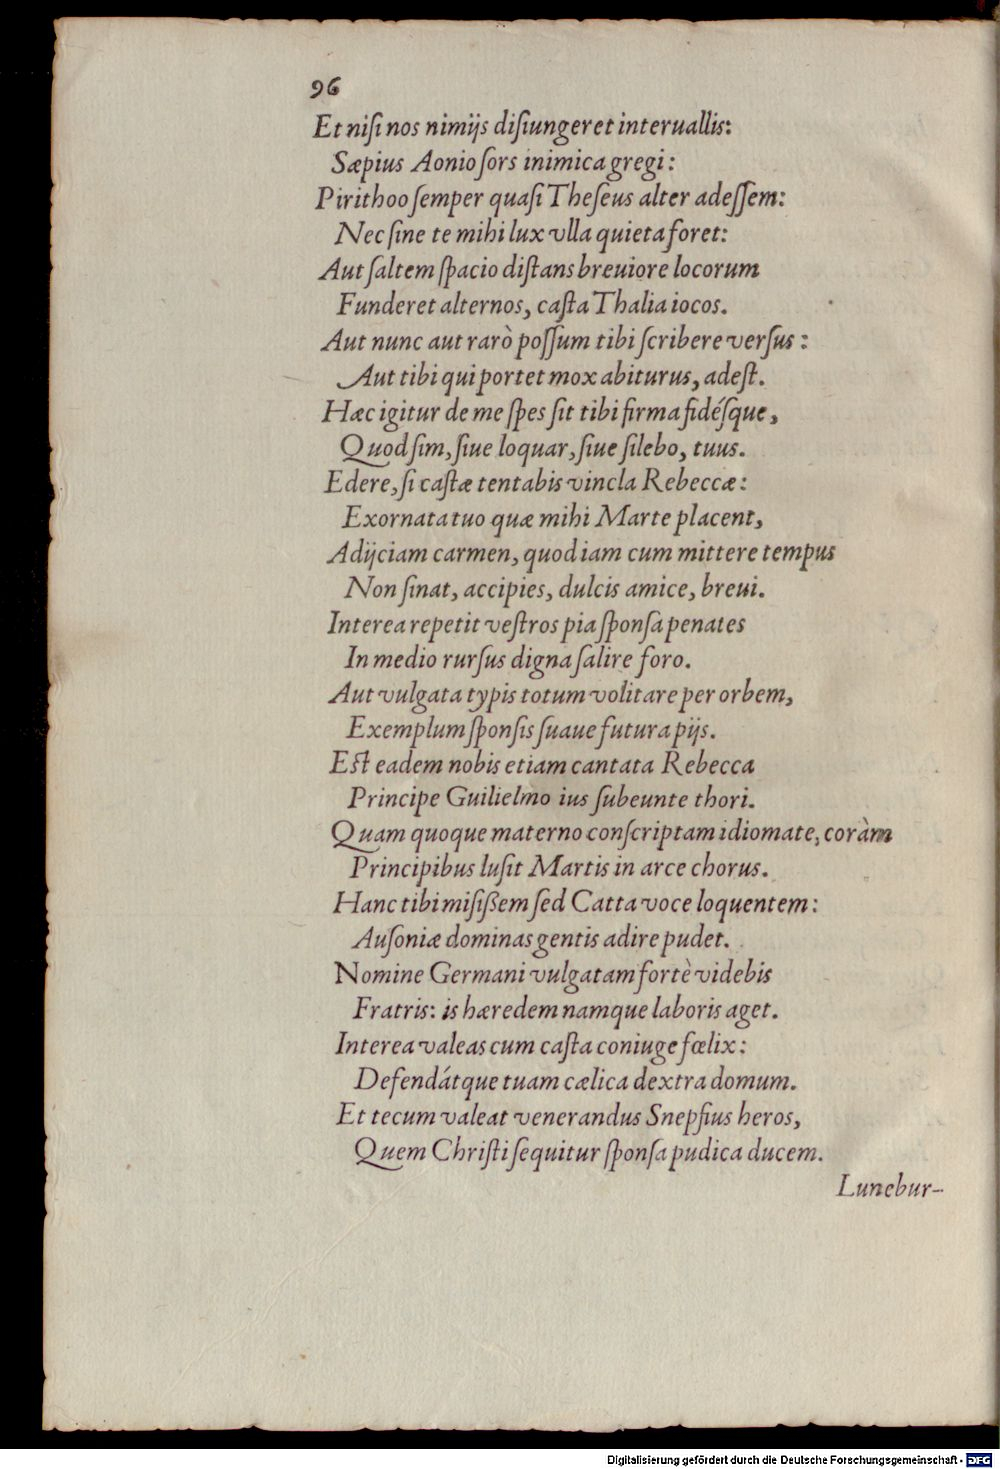 96
Et niſi nos nimijs diſiungeret interuallis:
Sæpius Aonio ſors inimica gregi:
Pirithoo ſemper quaſi Theſeus alter adeſſem:
Nec ſine te mihi lux vlla quieta foret:
Aut ſaltem ſpacio diſtans breuiore locorum
Funderet alternos, caſta Thalia iocos.
Aut nunc aut rarò poſſum tibi ſcribere verſus:
Aut tibi qui portet mox abiturus, adeſt.
Hæc igitur de me ſpes ſit tibi firma fidéſque,
Quod ſim, ſiue loquar, ſiue ſilebo, tuus.
Edere, ſi caſtæ tentabis vincla Rebeccæ:
Exornata tuo quæ mihi Marte placent,
Adijciam carmen, quod iam cum mittere tempus
Non ſinat, accipies, dulcis amice, breui.
Interea repetit veſtros pia ſponſa penates
In medio rurſus digna ſalire foro.
Aut vulgata typis totum volitare per orbem,
Exemplum ſponſis ſuaue futura pijs.
Eſt eadem nobis etiam cantata Rebecca
Principe Guilielmo ius ſubeunte thori.
Quam quoque materno conſcriptam idiomate, coràm
Principibus luſit Martis in arce chorus.
Hanc tibi miſißem ſed Catta voce loquentem:
Auſoniæ dominas gentis adire pudet.
Nomine Germani vulgatam fortè videbis
Fratris: is hæredem namque laboris aget.
Interea valeas cum caſta coniuge fœlix:
Defendátque tuam cælica dextra domum.
Et tecum valeat venerandus Snepfius heros,
Quem Chriſti ſequitur ſponſa pudica ducem.
Lunebur-
Digitalisierung gefördert durch die Deutsche Forschungsgemeinschaft - DFG